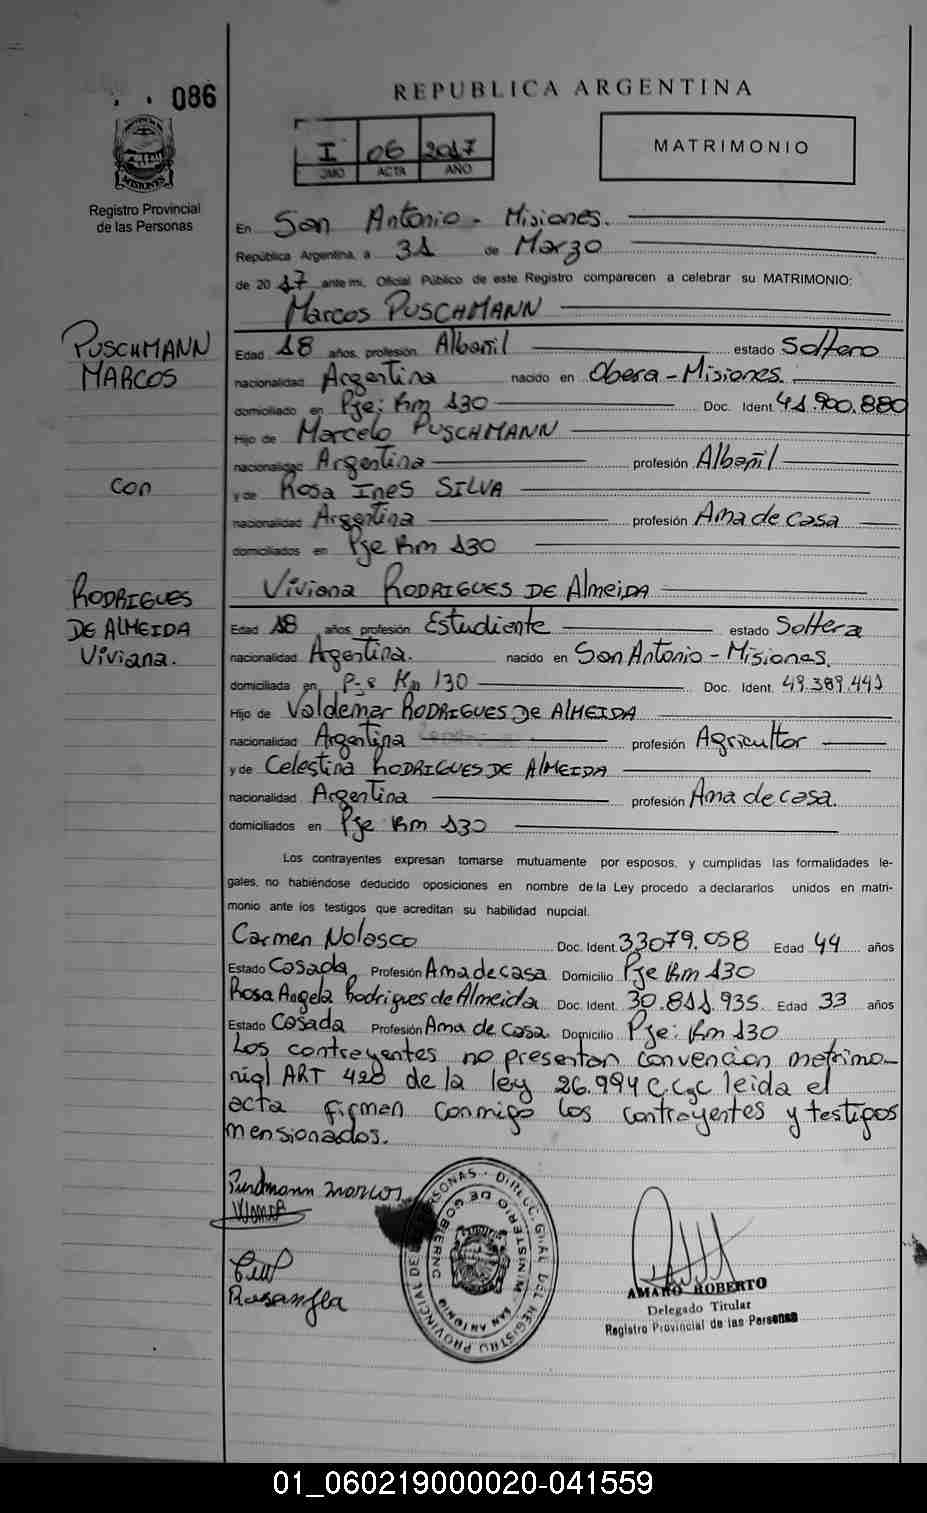 086
REPUBLICA ARGENTINA
I 06 2017
TOMO ACTA AÑO
MATRIMONIO
PROVINCIA DE MISIONES
Registro Provincial
de las Personas
En San Antonio - Misiones.
República Argentina, a 31 de Marzo
de 20 17 ante mi, Oficial Público de este Registro comparecen a celebrar su MATRIMONIO:
Marcos PUSCHMANN
PUSCHMANN
MARCOS
con
RODRIGUES
DE ALMEIDA
Viviana.
Edad 18 años, profesión Albañil estado Soltero
nacionalidad Argentina nacido en Obera - Misiones.
domiciliado en Pje: Km 130 Doc. Ident. 41.900.880
Hijo de Marcelo PUSCHMANN
nacionalidad Argentina profesión Albañil
y de Rosa Ines SILVA
nacionalidad Argentina profesión Ama de casa
domiciliados en Pje Km 130
Viviana RODRIGUES DE AlmeiDA
Edad 18 años, profesión Estudiante estado Soltera
nacionalidad Agentina. nacido en San Antonio - Misiones.
domiciliada en Km 130 Doc. Ident.
Hijo de Valdemar RODRIGUES De AlMEIDA
nacionalidad Argentina profesión Agricultor
y de Celestina RODRIGUES DE AlMEIDA
nacionalidad Argentina profesión Ama de casa.
domiciliados en Pje Km 130
Los contrayentes expresan tomarse mutuamente por esposos, y cumplidas las formalidades le-
gales, no habiéndose deducido oposiciones en nombre de la Ley procedo a declararlos unidos en matri-
monio ante los testigos que acreditan su habilidad nupcial.
Carmen Nolasco Doc. Ident. 33079.058 Edad 44 años
Estado Casada Profesión Ama de casa Domicilio Pje Km 130
Rosa Angela Rodrigues de Almeida Doc. Ident. 30.811.935 Edad 33 años
Estado Casada Profesión Ama de Casa Domicilio Pje: Km 130
Los contrayentes no presentan convencion matrimo-
nial ART 420 de la ley 26.994 C.CyC leida el
acta firman conmigo los contrayentes y testigos
mensionados.
marcos
Rosangela
DIRECC. GRAL. DEL REGISTRO PROVINCIAL DE LAS PERSONAS
MINISTERIO DE GOBIERNO
SAN ANTONIO
AMARO ROBERTO
Delegado Titular
Registro Provincial de las Personas
01_060219000020-041559